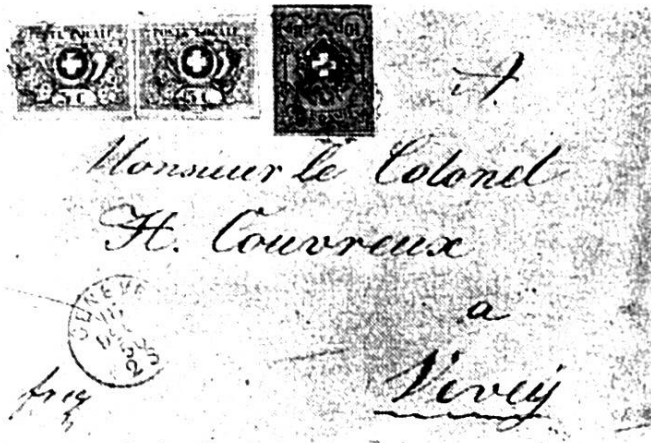 POSTE LOCALE POSTE LOCALE
5 C 5 C
A
Monsieur le Colonel
H. Couvreux
à
Vevey
GENÈVE